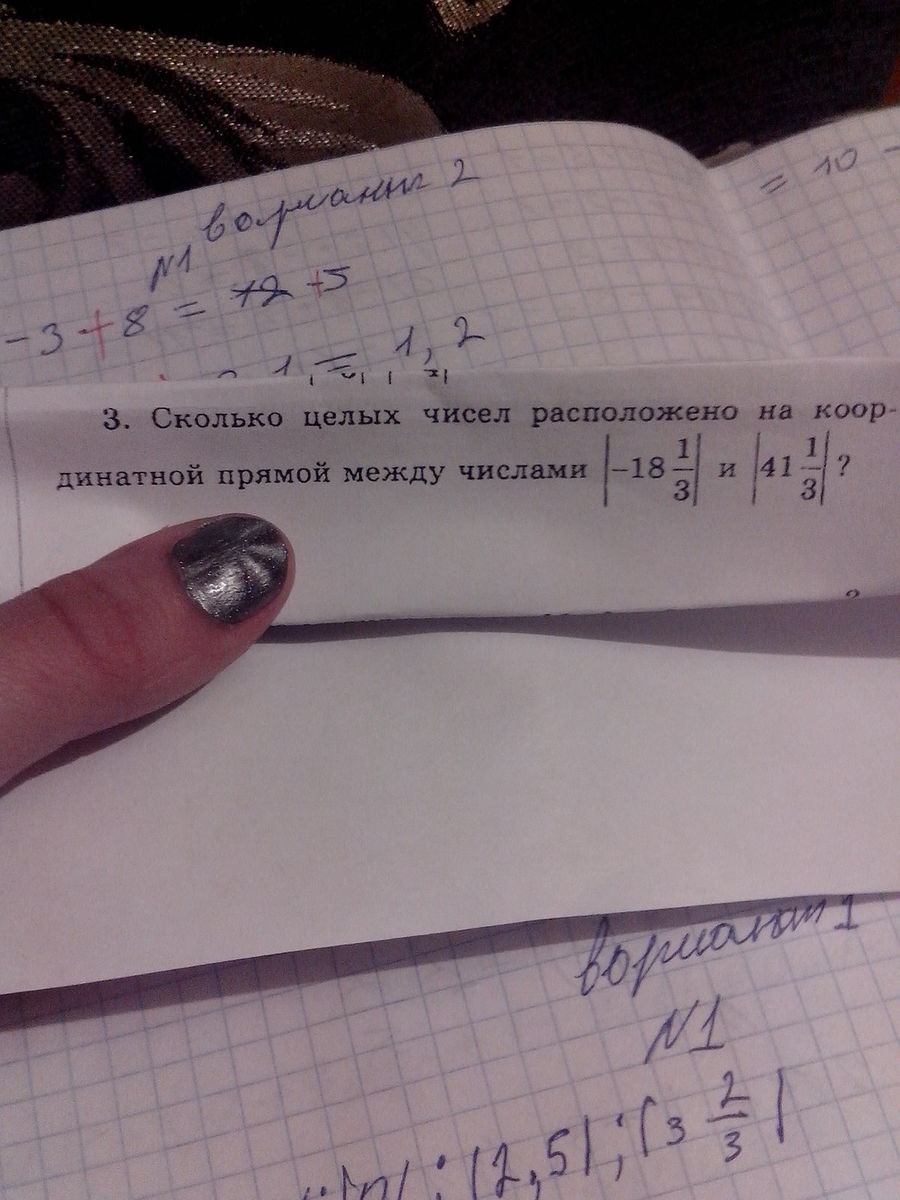 вариант 2
= 10 -
N1
-3+8 = 12 +5
1 = 1,2
3. Сколько целых чисел расположено на коор-
динатной прямой между числами |-18 1/3| и |41 1/3| ?
вариант 1
N1
; |2,5| ; |3 2/3|